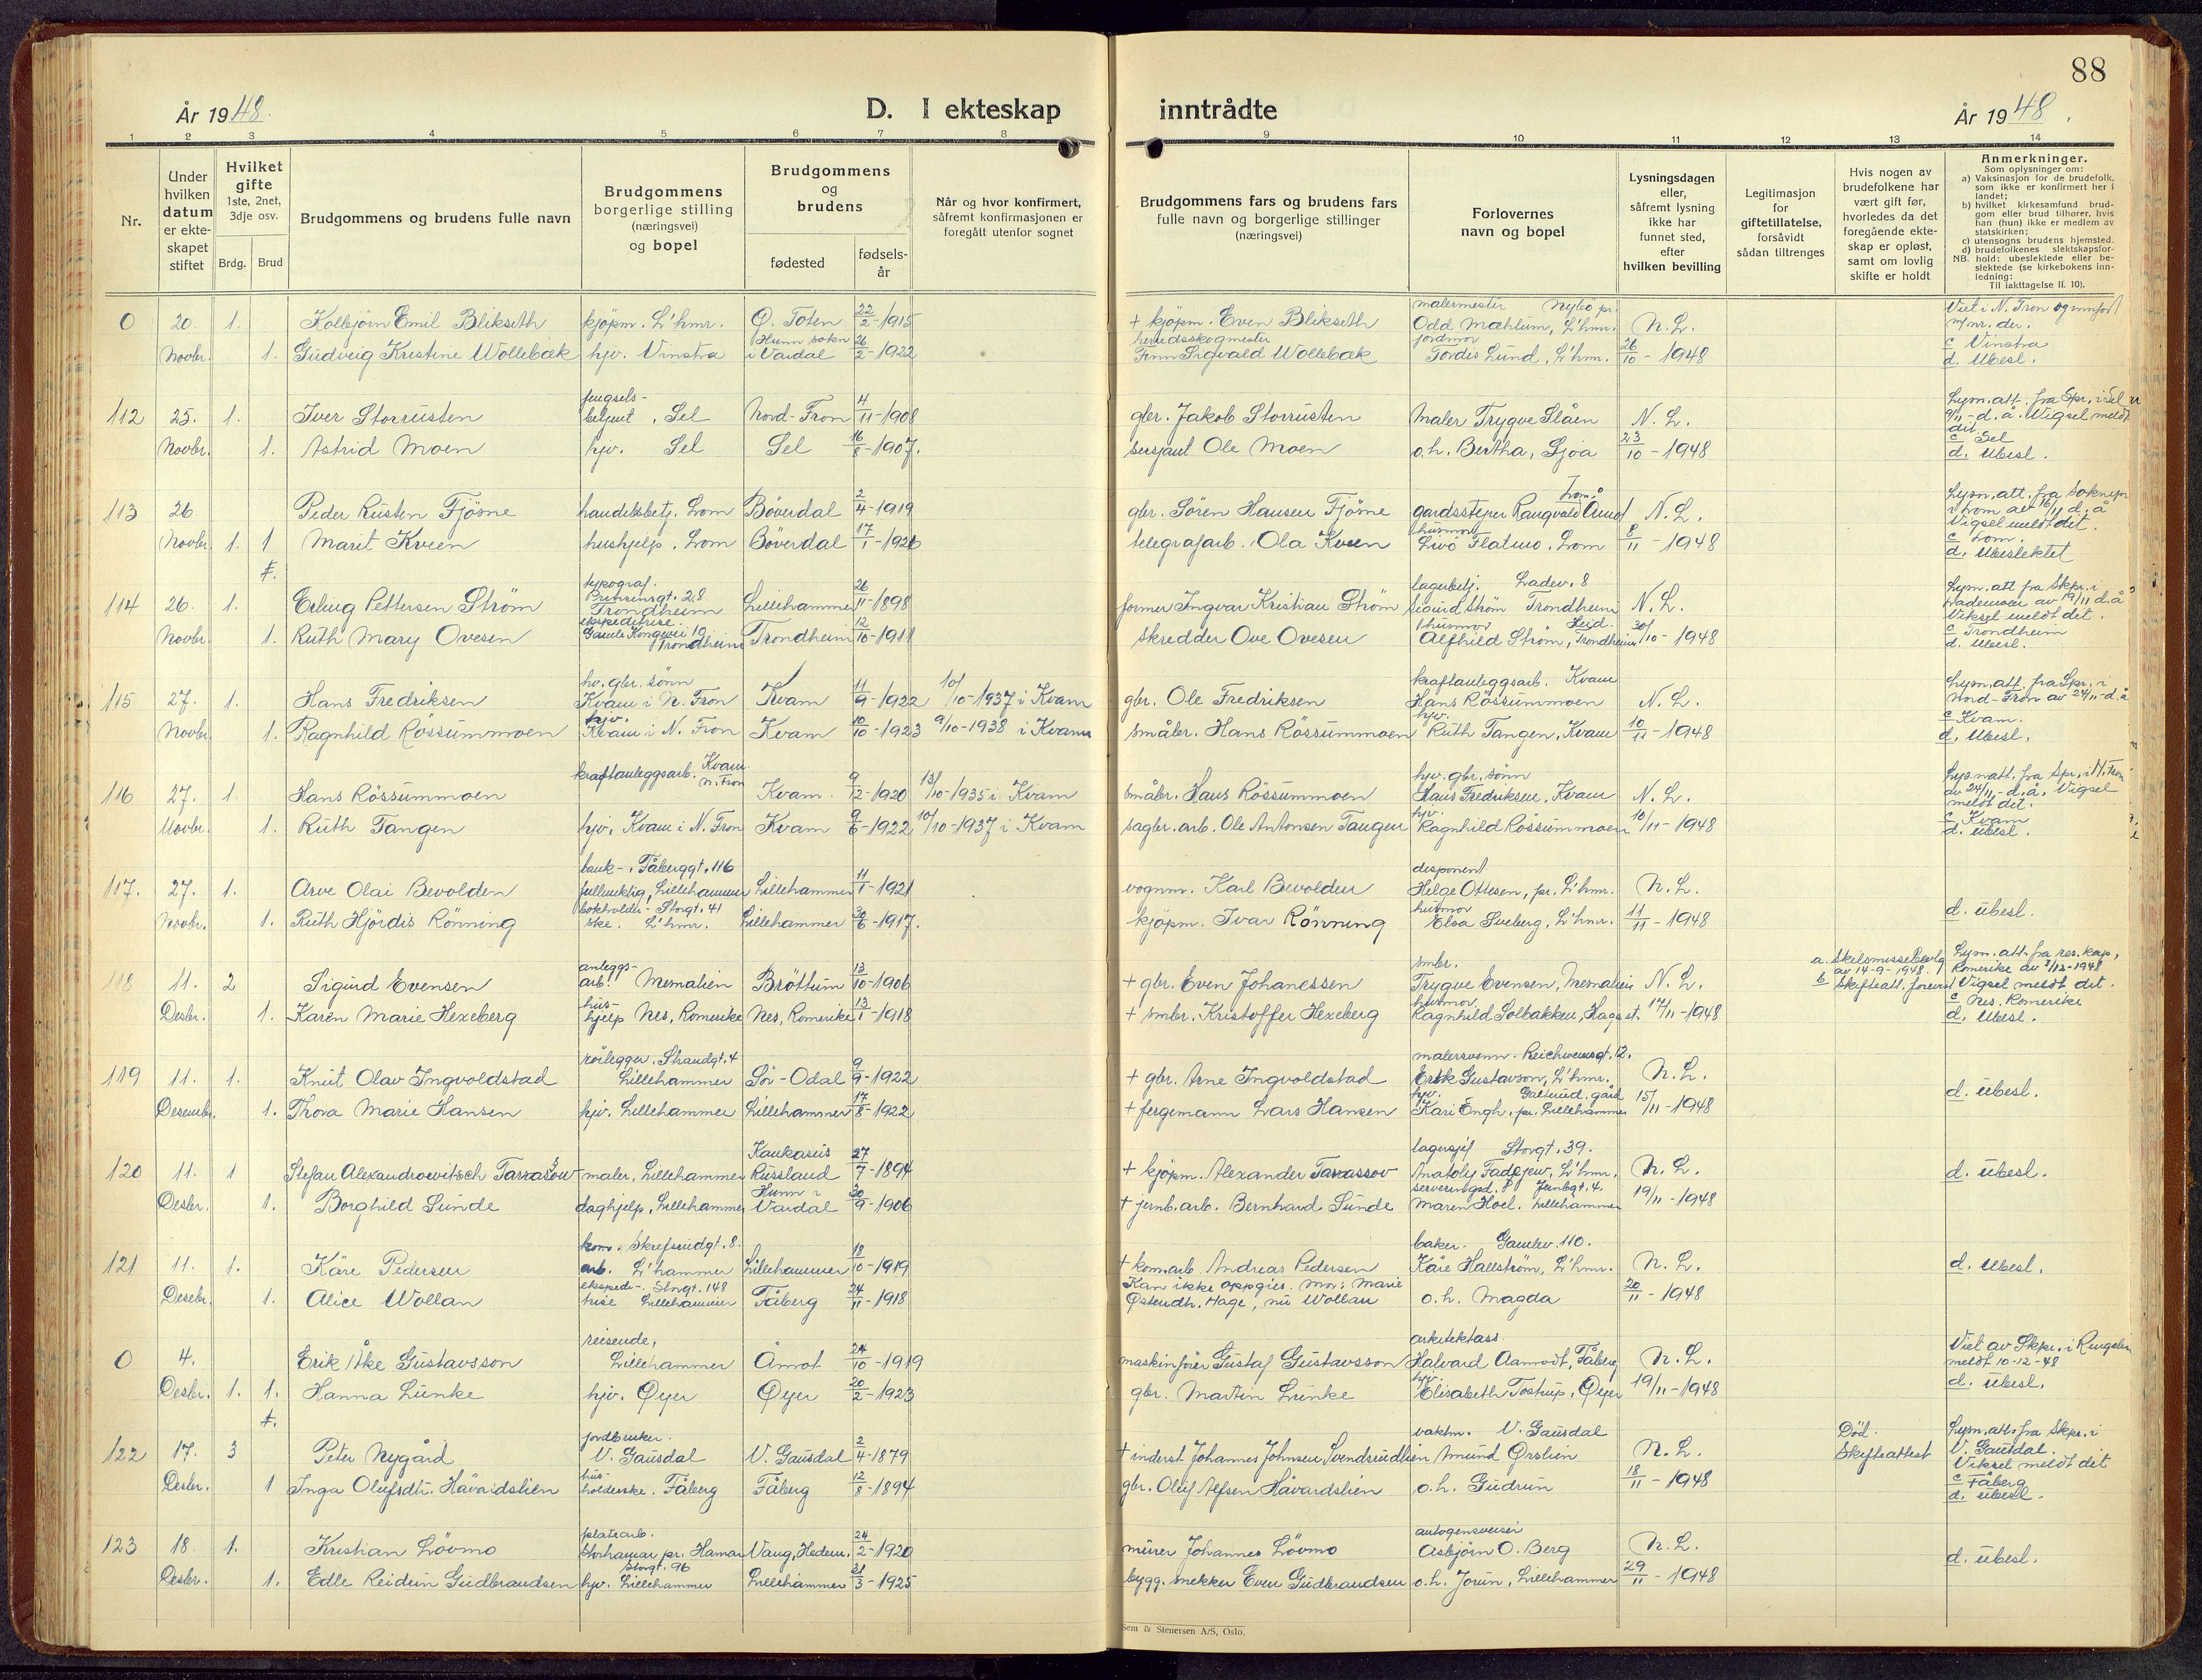 88
År 1948.
D. I ekteskap inntrådte
År 1948.
1 2 3 4 5 6 7 8 9 10 11 12 13 14
Nr.
Under hvilken datum er ekteskapet stiftet
Hvilket gifte 1ste, 2net, 3dje osv.
Brdg. Brud
Brudgommens og brudens fulle navn
Brudgommens borgerlige stilling (næringsvei) og bopel
Brudgommens og brudens
fødested
fødsels-år
Når og hvor konfirmert, såfremt konfirmasjonen er foregått utenfor sognet
Brudgommens fars og brudens fars fulle navn og borgerlige stillinger (næringsvei)
Forlovernes navn og bopel
Lysningsdagen eller, såfremt lysning ikke har funnet sted, efter hvilken bevilling
Legitimasjon for giftetillatelse, forsåvidt sådan tiltrenges
Hvis nogen av brudefolkene har vært gift før, hvorledes da det foregående ekteskap er opløst, samt om lovlig skifte er holdt
Anmerkninger.
Som oplysninger om:
a) Vaksinasjon for de brudefolk, som ikke er konfirmert her i landet;
b) hvilket kirkesamfund brudgom eller brud tilhører, hvis han (hun) ikke er medlem av statskirken;
c) utensogns brudens hjemsted.
d) brudefolkenes slektskapsforhold: ubeslektede eller beslektede (se kirkebokens innledning:
NB.
Til iakttagelse II. 10).
0 20. 1. Kolbjörn Emil Blikseth kjöpm. L'hmr. Ø. Toten 22/2-1915 + kjöpm. Even Blikseth malermester Nybo pr. Odd Mæhlum, L'hmr. N. L. Viet i N. Fron og innført m/nr. der.
Novbr. 1. Gudveig Kristine Wollebæk hjv. Vinstra Hunn sokn i Vardal 26/2-1922 herredsskogmester Finn Sigvald Wollebæk jordmor Tordis Lund, L'hm. 26/10-1948 c Vinstra d. Ubesl.
112 25. 1. Iver Storrusten fengselsbetjent, Sel Nord-Fron 4/11-1908 gbr. Jakob Storrusten Maler Trygve Slåen N. L. Lysn. att. fra Spr. i Sel 9/11-d.å. Vigsel meldt dit.
Novbr. 1. Astrid Moen hjv. Sel Sel 16/8-1907. sersjant Ole Moen o.h. Bertha, Sjoa 23/10-1948 c Sel d. Ubesl.
113 26. Peder Rusten Fjösne handelsbetj. Lom Böverdal 2/4-1919 gbr. Sören Hansen Fjösne gardsstyrer Rangvald Aamot Lom. N. L. Lysn. att. fra soknepr i Lom av 16/11 d.å Vigsel meldt dit.
Novbr. 1. 1 Marit Kveen hushjelp. Lom Böverdal 17/1-1926 telegrafarb. Ola Kveen husmor Livö Flatmo. Lom 8/11-1948 c Lom. d. Ubeslektet
F.
114 26. 1. Erling Pettersen Ström typograf. 28 Trondheim Lillehammer 26/11-1898 former Ingvar Kristian Ström lagerbetj. Ladev. 8 Sigurd Strøm Trondheim N. L. Lysn. att fra Skpr. i Lademoen av 19/11 d.å Viksel meldt dit.
Novbr. 1. Ruth Mary Ovesen ekspeditrise. Gamle Kongevei 19 Trondheim Trondheim 12/10-1911 skredder Ove Ovesen husmor Alfhild Ström, Trondheim 30/10-1948 c Trondheim d. Ubesl.
115 27. 1. Hans Fredriksen hv. gbr. sönn Kvam i N. Fron Kvam 11/9-1922 10/10-1937 i Kvam gbr. Ole Fredriksen kraftanleggsarb. Kvam Hans Rössummoen N. L. Lysn. att. fra Spr. i Nord-Fron av 24/11-d.å
Novbr. 1. Ragnhild Rössummoen hjv. Kvam i N. Fron Kvam 10/10-1923 9/10-1938 i Kvam småbr. Hans Rössummoen hjv. Ruth Tangen, Kvam 10/11-1948 c Kvam. d. Ubesl.
116 27. 1. Hans Rössummoen kraftanleggsarb. Kvam N. Fron Kvam. 9/12-1920 13/10-1935 i Kvam småbr. Hans Rössummoen hjv. gbr. sönn Hans Fredriksen, Kvam N. L. Lysn. att. fra Spr. i N. Fron av 24/11-d.å. Vigsel meldt dit.
Novbr. 1. Ruth Tangen hjv. Kvam i N. Fron Kvam 9/6-1922 10/10-1937 i Kvam sagbr. arb. Ole Antonsen Tangen hjv. Ragnhild Rössummoen 10/11-1948 c. Kvam d. ubesl.
117. 27. 1. Arve Olai Bevolden bank-fullmektig, Fåberggt. 116 Lillehammer Lillehammer 11/1-1921 vognm. Karl Bevolden disponent Helge Ottesen, pr. L'hmr. N. L.
Novbr. 1. Ruth Hjördis Rönning bokholderske. Storgt. 41 L'hmr. Lillehammer 30/6-1917. kjöpm. Ivar Rönning husmor Elsa Sveberg, L'hmr. 11/11-1948 d. ubesl.
118 11. 2 Sigurd Evensen anleggsarb. Mesnalien Bröttum 13/10-1906 + gbr. Even Johanessen smbr. Trygve Evensen, Mesnalien N. L. a. Skilsmissebevilg av 14-9-1948. b Skifteatt. forevist Lysn. att. fra res. kap. Romerike av 3/12-1948 Vigsel meldt dit.
Desbr. 1. Karen Marie Hexeberg hushjelp Nes, Romerike Nes, Romerike 13/1-1918 + smbr. Kristoffer Hexeberg husmor Ragnhild Solbakken, Hagast. 17/11-1948 c Nes. Romerike d. Ubesl.
119 11. 1. Knut Olav Ingvoldstad rörlegger. Strandgt. 4 Lillehammer Sör-Odal 9/9-1922 + gbr. Arne Ingvoldstad malersvenn. Reichweinsgt. 12. Erik Gustavson, L'hmr. N. L.
Desembr. 1. Thora Marie Hansen hjv. Lillehammer Lillehammer 17/8-1922 + fergemann Lars Hansen hjv. Kari Engh. pr. Lillehammer 15/11-1948 d. ubesl.
120 11. 1 Stefan Alexandrowitsch Tarrasow maler, Lillehammer Kaukasus Russland 27/7-1894 + kjöpm. Alexander Tarrassov lagersjef Storgt. 39. Anatoly Fadejew, L'hmr. N. L. d. ubesl.
Desbr. 1. Borghild Sunde daghjelp, Lillehammer Hunn i Vardal 30/9-1906 + jernb. arb. Bernhard Sunde serveringsd. Jernbgt. 4. Maren Hoel. Lillehammer 19/11-1948
121 11. 1. Kåre Pedersen kom. arb. Skrefsrudgt. 8. L'hammer Lillehammer 18/10-1919 + kom. arb Andreas Pedersen baker. Gamlev. 110. Kåre Hallström, L'hmr. N. L. d. Ubesl.
Desbr. 1. Alice Wollan ekspeditrise Storgt. 148 Lillehammer Fåberg 24/11-1918 Kan ikke oppgies. Mor: Marie Østendh. Hage, nu Wollan o.h. Magda 20/11-1948
0 4. Erik Åke Gustavsson reisende, Lillehammer Åmot 24/10-1919 maskinfører Gustaf Gustavsson arkitektass. Halvard Aamodt, Fåberg N. L. Viet av Skpr. i Ringebu meldt 10-12-48
Desbr. 1. 1. Hanna Lunke hjv. Øyer Øyer 20/2-1923 gbr. Martin Lunke hjv. Elisabeth Tostrup, Øyer 19/11-1948 d. ubesl.
F.
122 17. 3 Peter Nygård jordbruker. V. Gausdal V. Gausdal 2/4-1879 + inderst Johannes Johnsen Svendsrudlien vaktm. V. Gausdal Amund Ørslien N. L. Död. Skifteattest Lysn. att. fra Skpr. i V. Gausdal. Viksel meldt dit
Desbr. 1 Inga Olufsdtr. Håvardslien husholderske. Fåberg Fåberg 12/8-1894 gbr. Oluf Alfsen Håvardslien o.h. Gudrun 18/11-1948 c Fåberg d. ubesl.
123 18. 1. Kristian Lövmo platearb. Storhamar pr. Hamar Vang, Hedem. 24/2-1920 murer Johannes Lövmo autogensveiser Asbjörn O. Berg N. L.
Desbr. 1. Edle Reidun Gudbrandsen Storgt. 96 hjv. Lillehammer Lillehammer 21/3-1925 bygg. snekker Even Gudbrandsen o.h. Jorun, Lillehammer 29/11-1948 d. ubesl.
Sem & Stenersen A/S, Oslo.